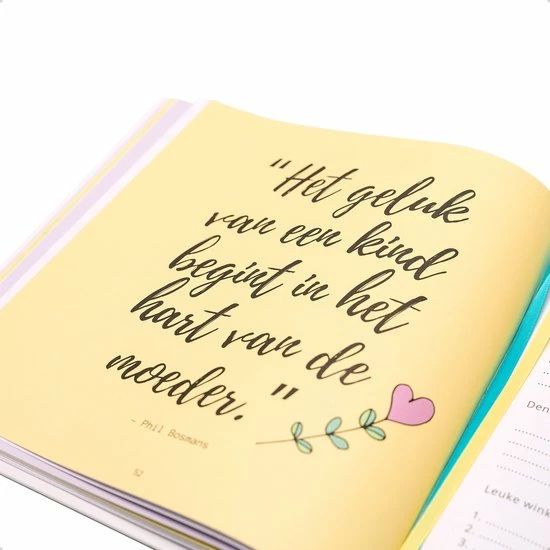 "Het geluk
van een kind
begint in het
hart van de
moeder."
- Phil Bosmans
52
Leuke
1.
2.
3.